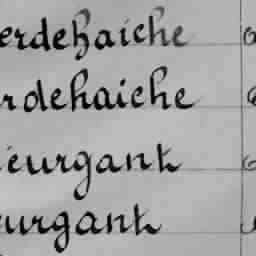 erdehaiche
rdehaiche
ieurgant
eurgant